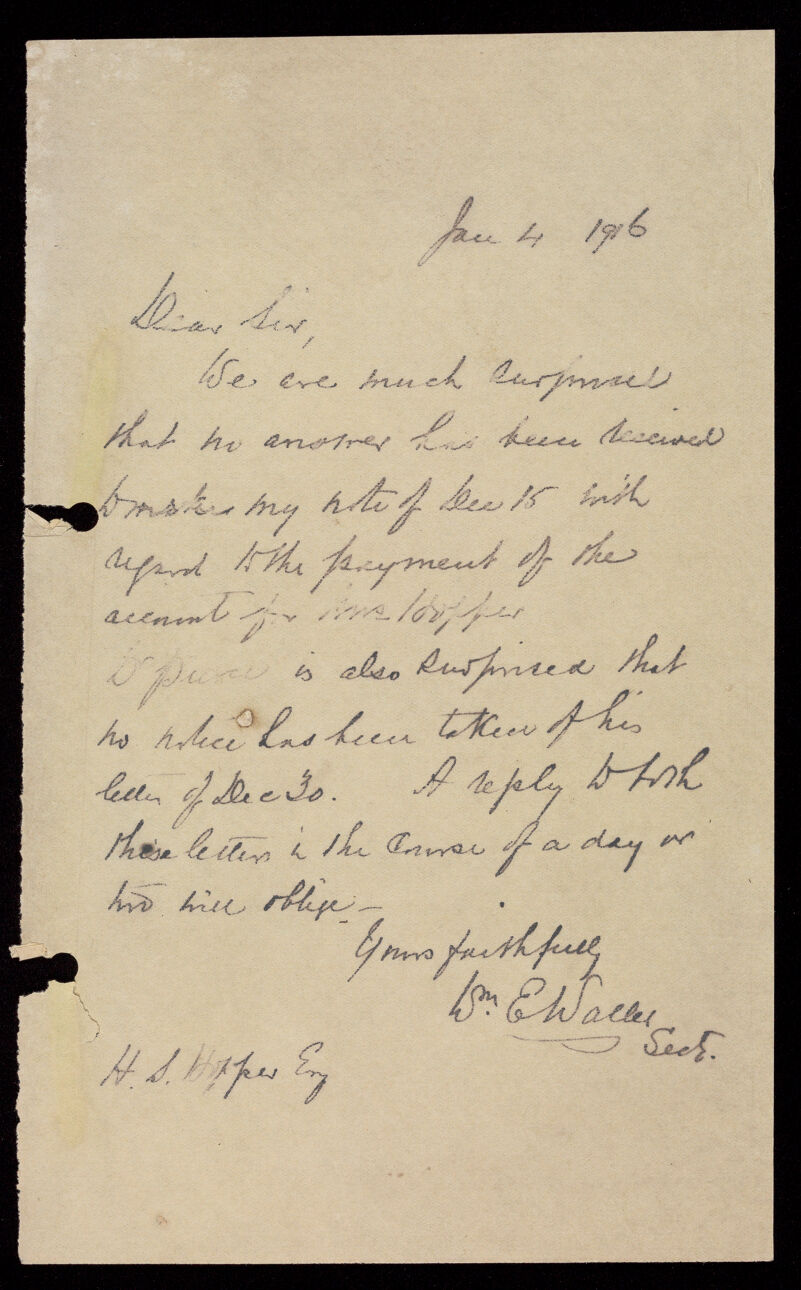 Jan 4 1916
Dear Sir,
We are much surprised
that no answer has been received
to my note of Dec 15 with
regard to the payment of the
account for Mrs Hopper
Dr Pierce is also surprised that
no notice has been taken of his
letter of Dec 30. A reply to both
these letters in the course of a day or
two will oblige —
Yours faithfully
Wm. E Waller
Sect.
H. S. Hopper Esq